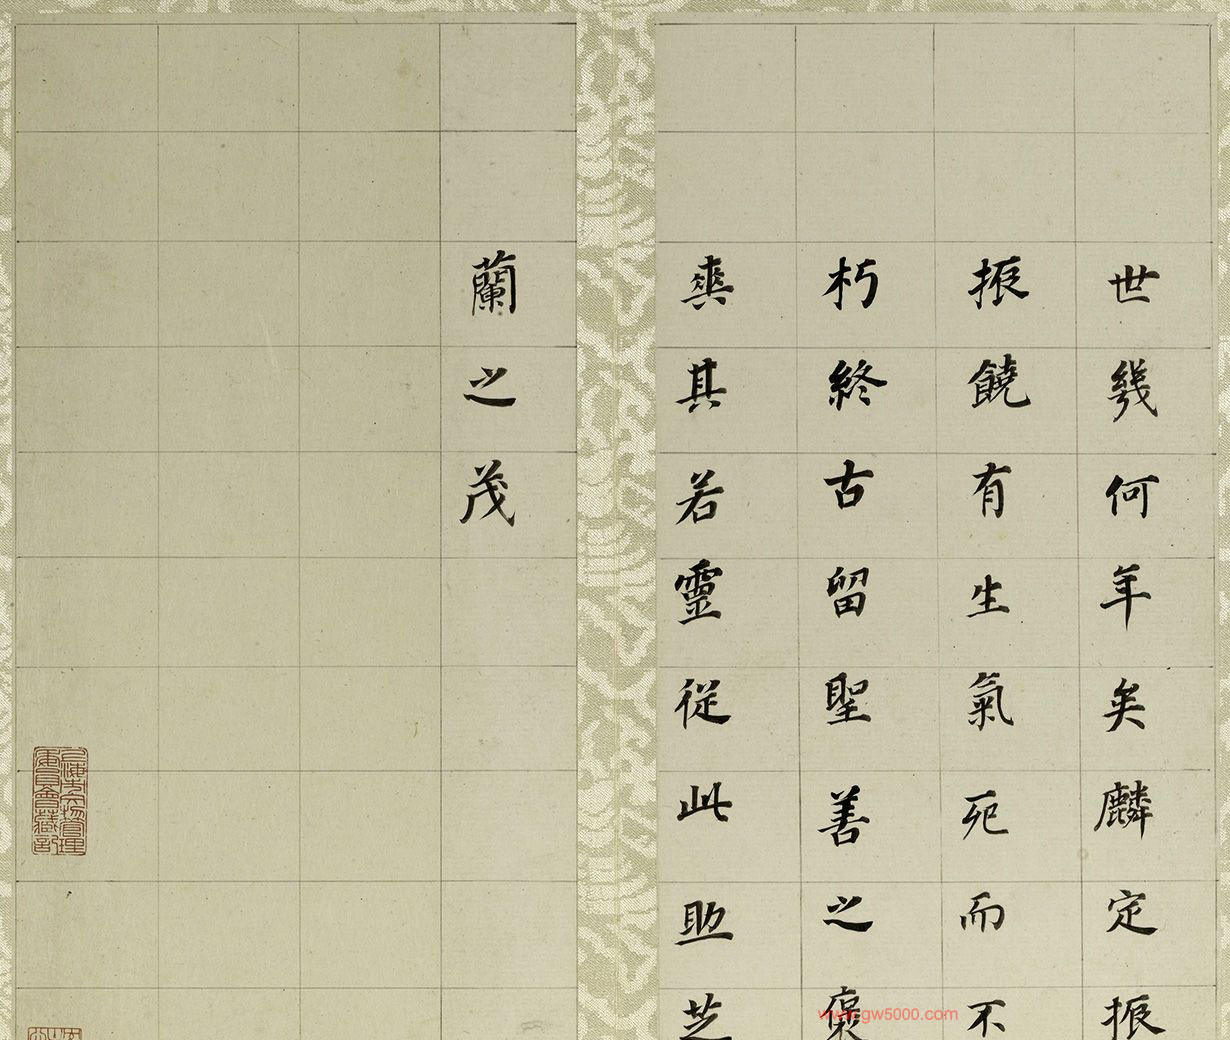 世幾何年矣麟定振
振饒有生氣死而不
朽終古留聖善之褒
爽其若靈從此助芝
蘭之茂
www.gw5000.com